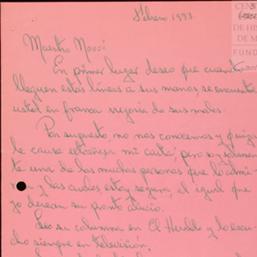 Febrero 1993
CEN
DE HI
DE M
FUND
Maestro Monsi
En primer lugar deseo que cuando
lleguen estas líneas a sus manos se encuentre
usted en franca mejoría de sus males.
Por supuesto no nos conocemos y quizá
le cause extrañeza mi carta, pero soy solamen
te una de las muchas personas que lo admi
ran y las cuales estoy segura, al igual que
yo desean su pronto alivio.
Leo su columna en El Heraldo y lo escu
cho siempre en televisión.